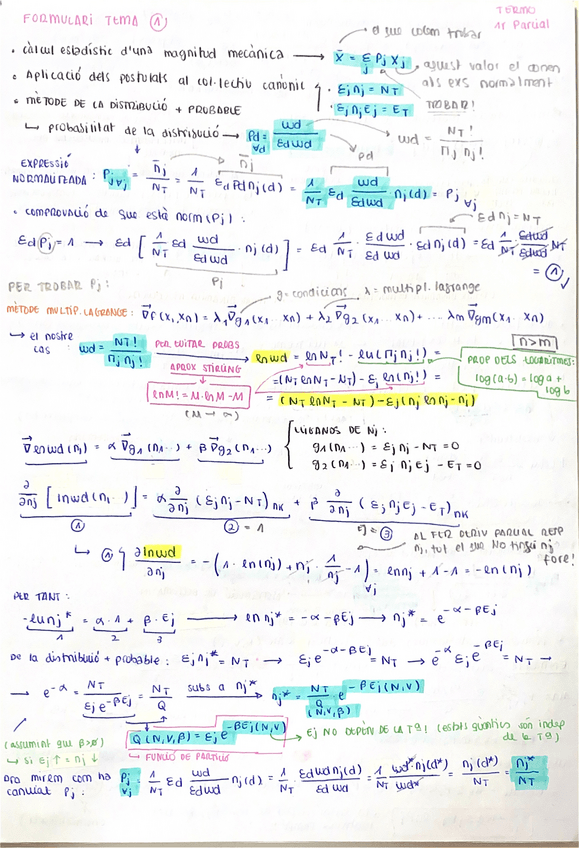 FORMULARI TEMA ①
TERMO
1r Parcial
el que volem trobar
• càlcul estadístic d'una magnitud mecànica → x̄ = Σj Pj Xj
aquest valor el donen
als exs normalment
• Aplicació dels postulats al col·lectiu canònic
• Σj nj = NT
• Σj nj Ej = ET
TROBAR!
• MÈTODE DE LA DISTRIBUCIÓ + PROBABLE
↳ probabilitat de la distribució → Pd = wd / Σd wd
∀d
wd = NT! / Πj nj!
Pd
EXPRESSIÓ
NORMALITZADA: Pj ∀j = n̄j / NT = 1/NT Σd Pd nj(d) = 1/NT Σd wd / Σd wd nj(d) = Pj ∀j
n̄j
• comprovació de que està norm (Pj):
Σd nj = NT
Σd Pj = 1 → Σd [ 1/NT Σd wd / Σd wd · nj(d) ] = Σd 1/NT · Σd wd / Σd wd · Σd nj(d) = Σd 1/NT · Σd wd / Σd wd NT
Pj
= ① ✓
PER TROBAR Pj:
g = condicions λ = multipl. lagrange
MÈTODE MULTIP. LAGRANGE: ∇f(x1, xn) = λ1 ∇g1(x1 ... xn) + λ2 ∇g2(x1 ... xn) + ... λm ∇gm(x1, xn)
n>m
↳ el nostre
cas: wd = NT! / Πj nj!
PER EVITAR PROBS
APROX STIRLING
ln M! = M·ln M − M
(M → ∞)
ln wd = ln NT! − ln(Πj nj!) =
= (NT ln NT − NT) − Σj ln(nj!) =
= (NT ln NT − NT) − Σj (nj ln nj − nj)
PROP DELS LOGARITMES:
log(a·b) = log a +
log b
∇ ln wd (nj) = α ∇g1(n1...) + β ∇g2(n1...)
LLIGANDS DE Nj:
g1(n1...) = Σj nj − NT = 0
g2(n1...) = Σj nj Ej − ET = 0
∂/∂nj [ ln wd (n1.. ) ] = α ∂/∂nj (Σj nj − NT)nK + β ∂/∂nj (Σj nj Ej − ET)nK
① ② = 1 Ej = ③
AL FER DERIV PARCIAL RESP
nj, tot el que NO tingui nj
fore!
↳ ① ∂ ln wd / ∂nj = −(1 · ln(nj) + nj · 1/nj − 1)∀j = ln nj + 1 − 1 = −ln(nj)
PER TANT:
−ln nj* = α · 1 + β · Ej → ln nj* = −α − βEj → nj* = e^(−α−βEj)
1 2 3
De la distribució + probable: Σj nj* = NT → Σj e^(−α−βEj) = NT → e^(−α) Σj e^(−βEj) = NT →
→ e^(−α) = NT / Σj e^(−βEj) = NT / Q subs a nj* → nj* = NT / Q e^(−βEj(N,V))
(N,V,β)
Q(N,V,β) = Σj e^(−βEj(N,V))
↳ FUNCIÓ DE PARTICIÓ
(assumint que β>0)
↳ si Ej ↑ = nj ↓
Ej NO DEPÈN DE LA Tª! (estats quàntics són indep
de la Tª)
Ara mirem com ha
canviat Pj: Pj ∀j = 1/NT Σd wd / Σd wd nj(d) = 1/NT · Σd wd nj(d) / Σd wd = 1/NT wd* · nj(d*) / wd* = nj(d*) / NT = nj* / NT